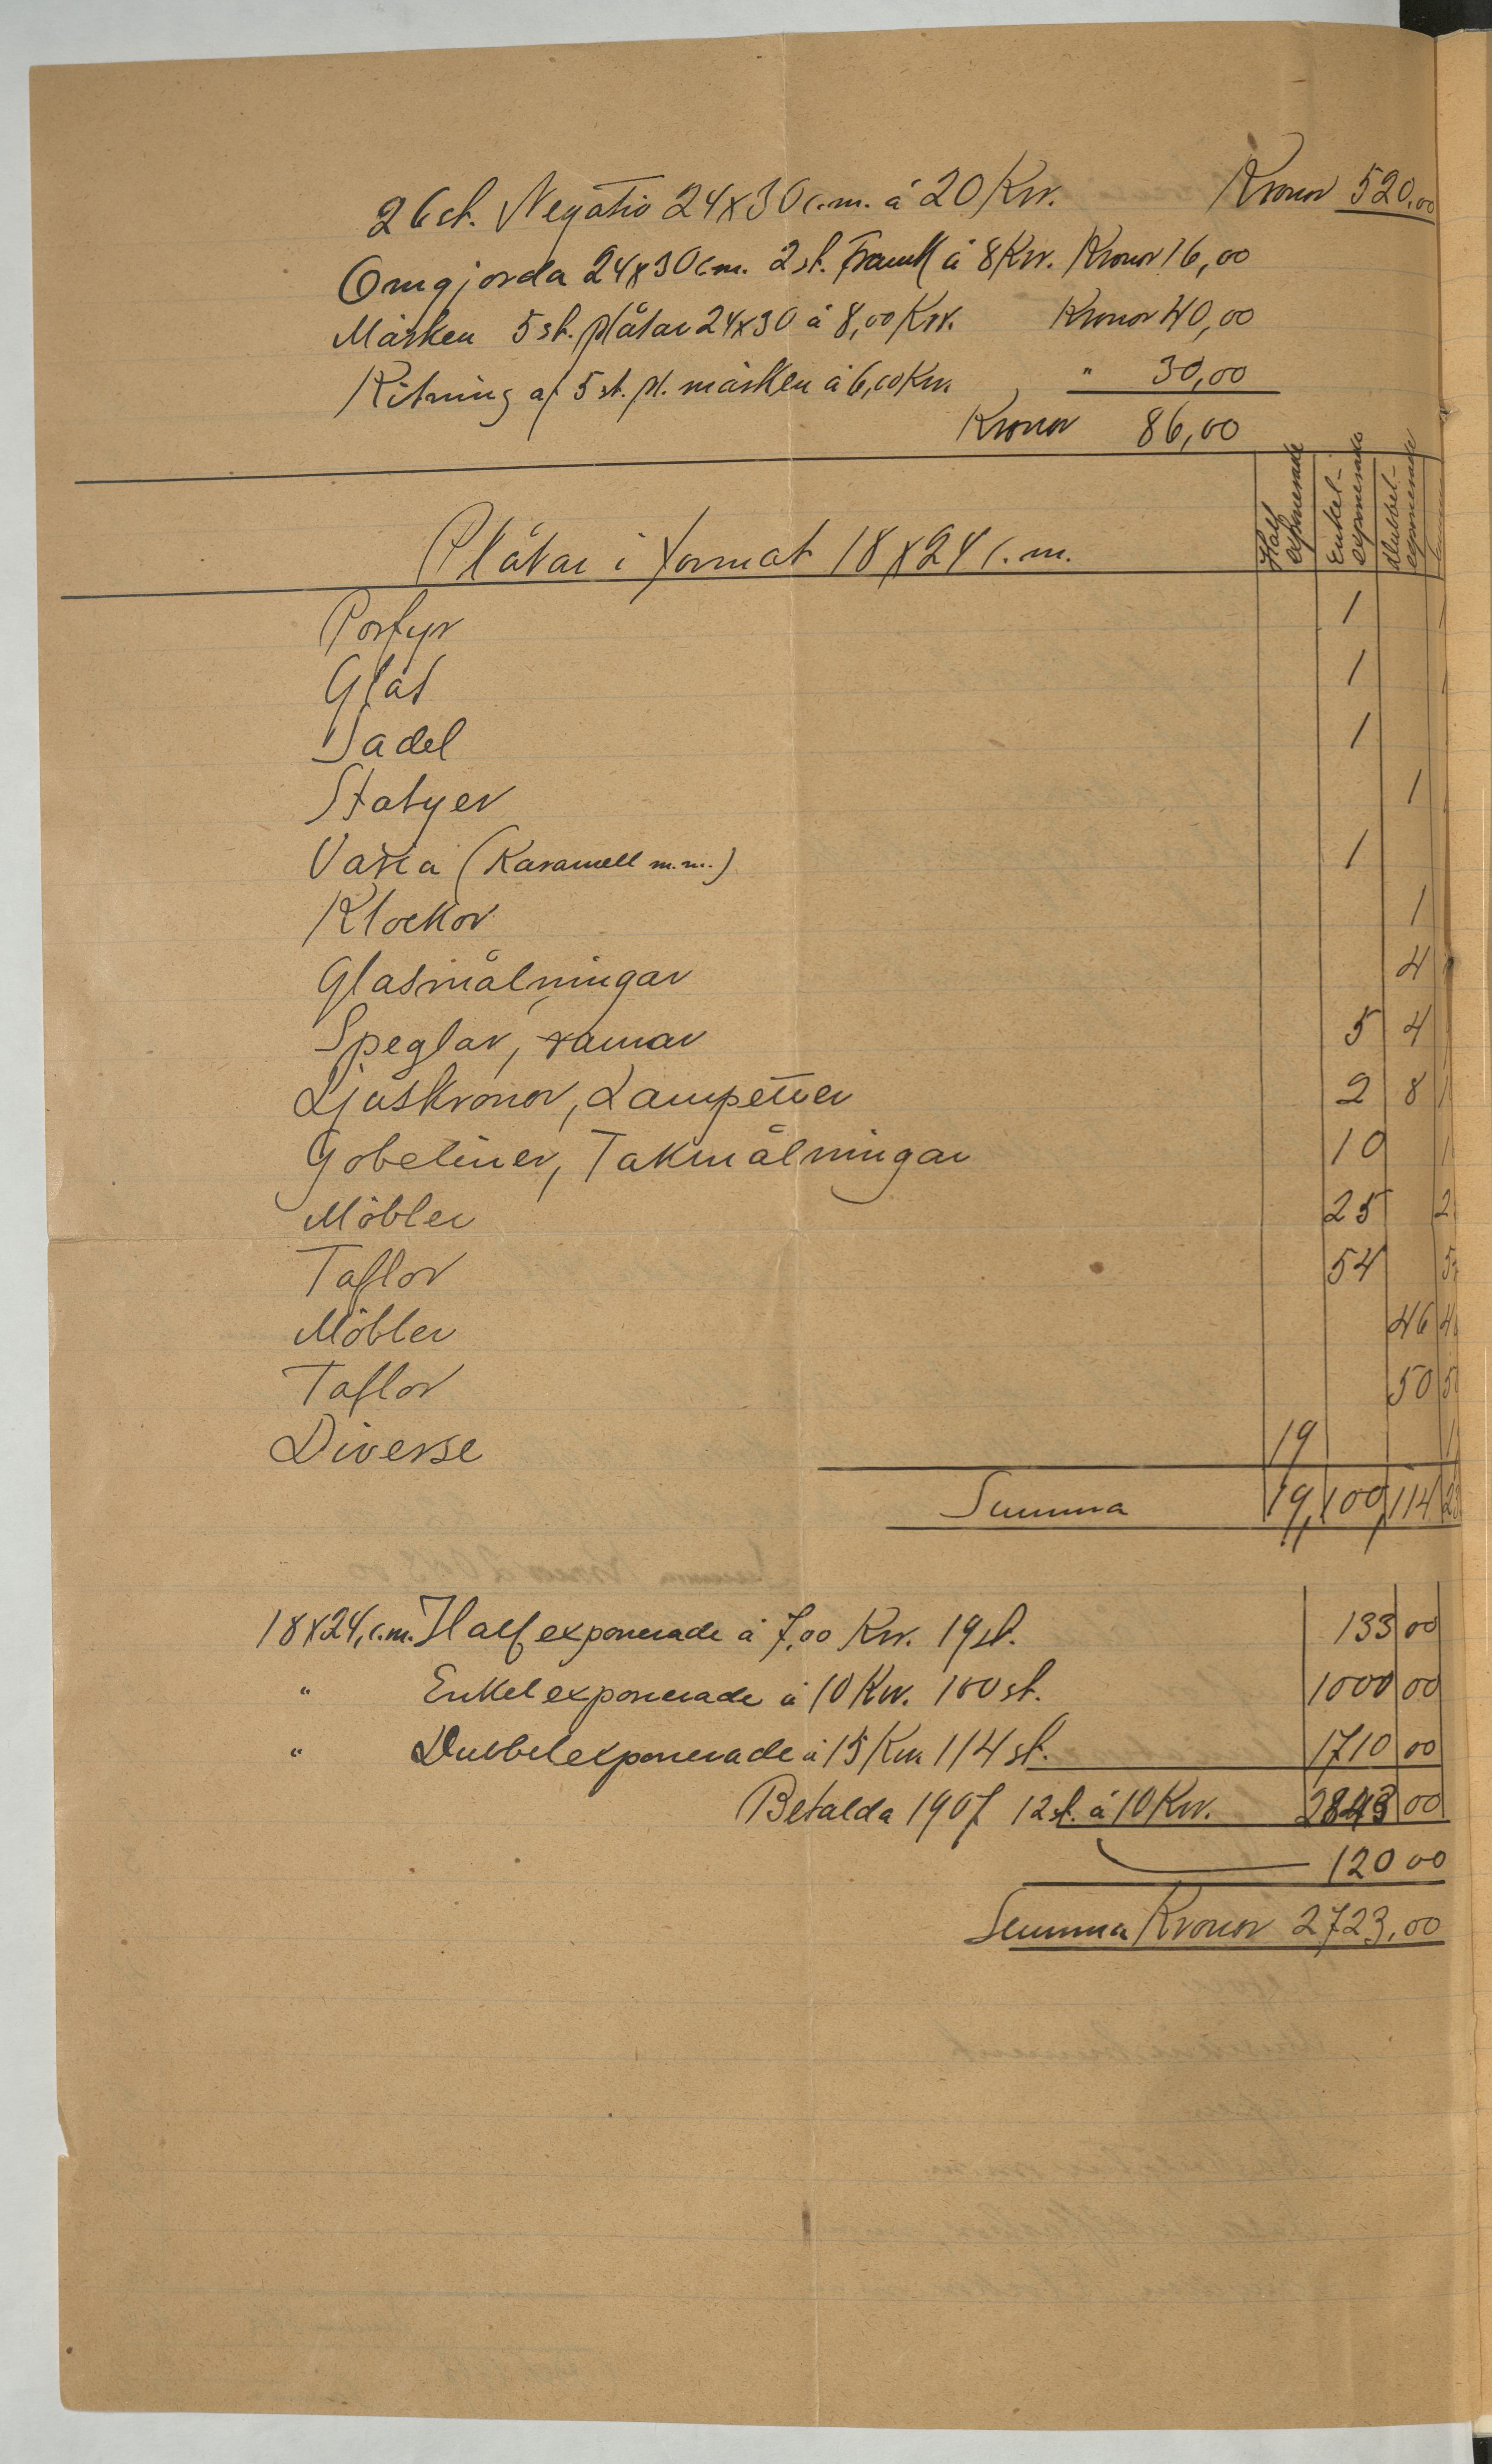 26 st. Negativ 24x30 c.m. á 20 Kr. Kronor 520.00
Omgjorda 24x30 cm. 2 st. á 8 Kr. Kronor 16,00
Märken 5 st. plåtar 24x30 á 8,00 Kr. Kronor 40,00
Ritning af 5 st. pl. märken á 6,00 Kr. " 30,00
Kronor 86,00
Plåtar i format 18x24 c.m. Half exponerade Enkel-exponerade Dubbel-exponerade
Porfyr 1
Glas 1
Sadel 1
Statyer 1
Varia (Karamell m.m.) 1
Klockor 1
Glasmålningar 4
Speglar, ramar 5 4
Ljuskronor, Lampetter 2 8
Gobeliner, Takmålningar 10
Möbler 25
Taflor 54
Möbler 46
Taflor 50
Diverse 19
Summa 19, 100, 114
18x24, c.m. Half exponerade á 7,00 Kr. 19 st. 133 00
" Enkel exponerade á 10 Kr. 100 st. 1000 00
" Dubbel exponerade á 15 Kr. 114 st. 1710 00
Betalda 1907 12 st. á 10 Kr. 2843 00
120 00
Summa Kronor 2723,00